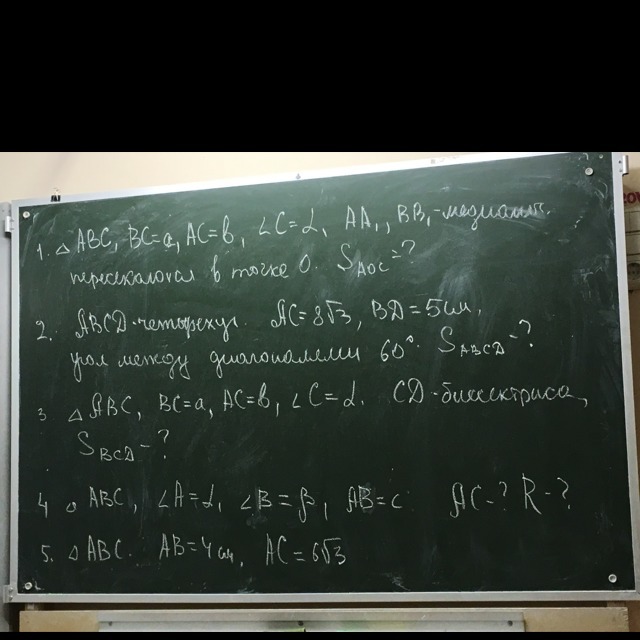 1. △ ABC, BC=a, AC=b, ∠C=α, AA₁, BB₁-медианы.
пересекаются в точке O. S_AOC=?
2. ABCD-четырехуг. AC=8√3, BD=5см,
угол между диагоналями 60°. S_ABCD-?
3 △ ABC, BC=a, AC=b, ∠C=α. CD-биссектриса,
S_BCD-?
4 △ ABC, ∠A=α, ∠B=β, AB=c AC-? R-?
5. △ ABC. AB=4см, AC=6√3